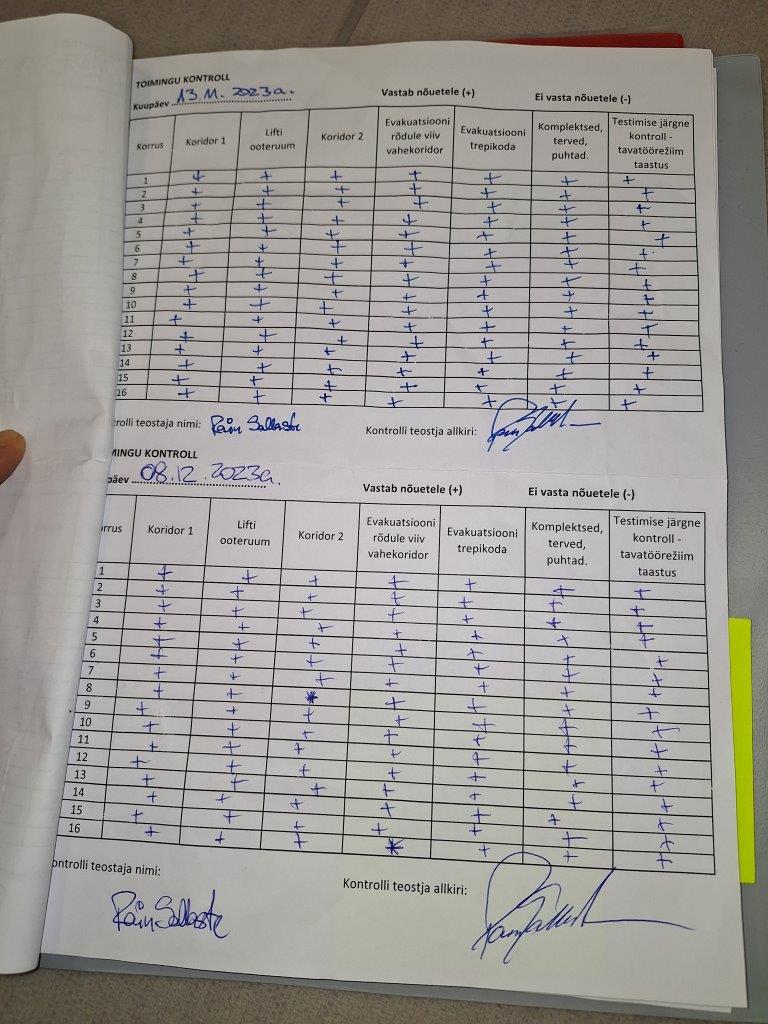 TOIMINGU KONTROLL
Kuupäev 13.11.2023a. Vastab nõuetele (+) Ei vasta nõuetele (-)
Korrus Koridor 1 Lifti ooteruum Koridor 2 Evakuatsiooni rõdule viiv vahekoridor Evakuatsiooni trepikoda Komplektsed, terved, puhtad. Testimise järgne kontroll - tavatöörežiim taastus
1 + + + + + + +
2 + + + + + + +
3 + + + + + + +
4 + + + + + + +
5 + + + + + + +
6 + + + + + + +
7 + + + + + + +
8 + + + + + + +
9 + + + + + + +
10 + + + + + + +
11 + + + + + + +
12 + + + + + + +
13 + + + + + + +
14 + + + + + + +
15 + + + + + + +
16 + + + + + + +
trolli teostaja nimi: Rain Sallaste Kontrolli teostja allkiri:
MINGU KONTROLL
päev 08.12.2023a. Vastab nõuetele (+) Ei vasta nõuetele (-)
rrus Koridor 1 Lifti ooteruum Koridor 2 Evakuatsiooni rõdule viiv vahekoridor Evakuatsiooni trepikoda Komplektsed, terved, puhtad. Testimise järgne kontroll - tavatöörežiim taastus
1 + + + + + + +
2 + + + + + + +
3 + + + + + + +
4 + + + + + + +
5 + + + + + + +
6 + + + + + + +
7 + + + + + + +
8 + + * + + + +
9 + + + + + + +
10 + + + + + + +
11 + + + + + + +
12 + + + + + + +
13 + + + + + + +
14 + + + + + + +
15 + + + + + + +
16 + + + * + + +
ontrolli teostaja nimi: Kontrolli teostja allkiri:
Rain Sallaste